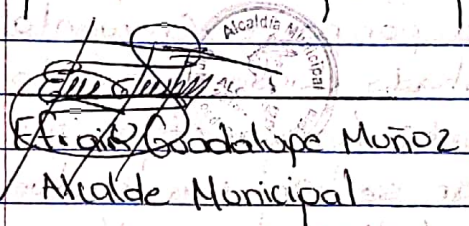 Alcaldía Municipal
Efraín Guadalupe Muñoz
Alcalde Municipal